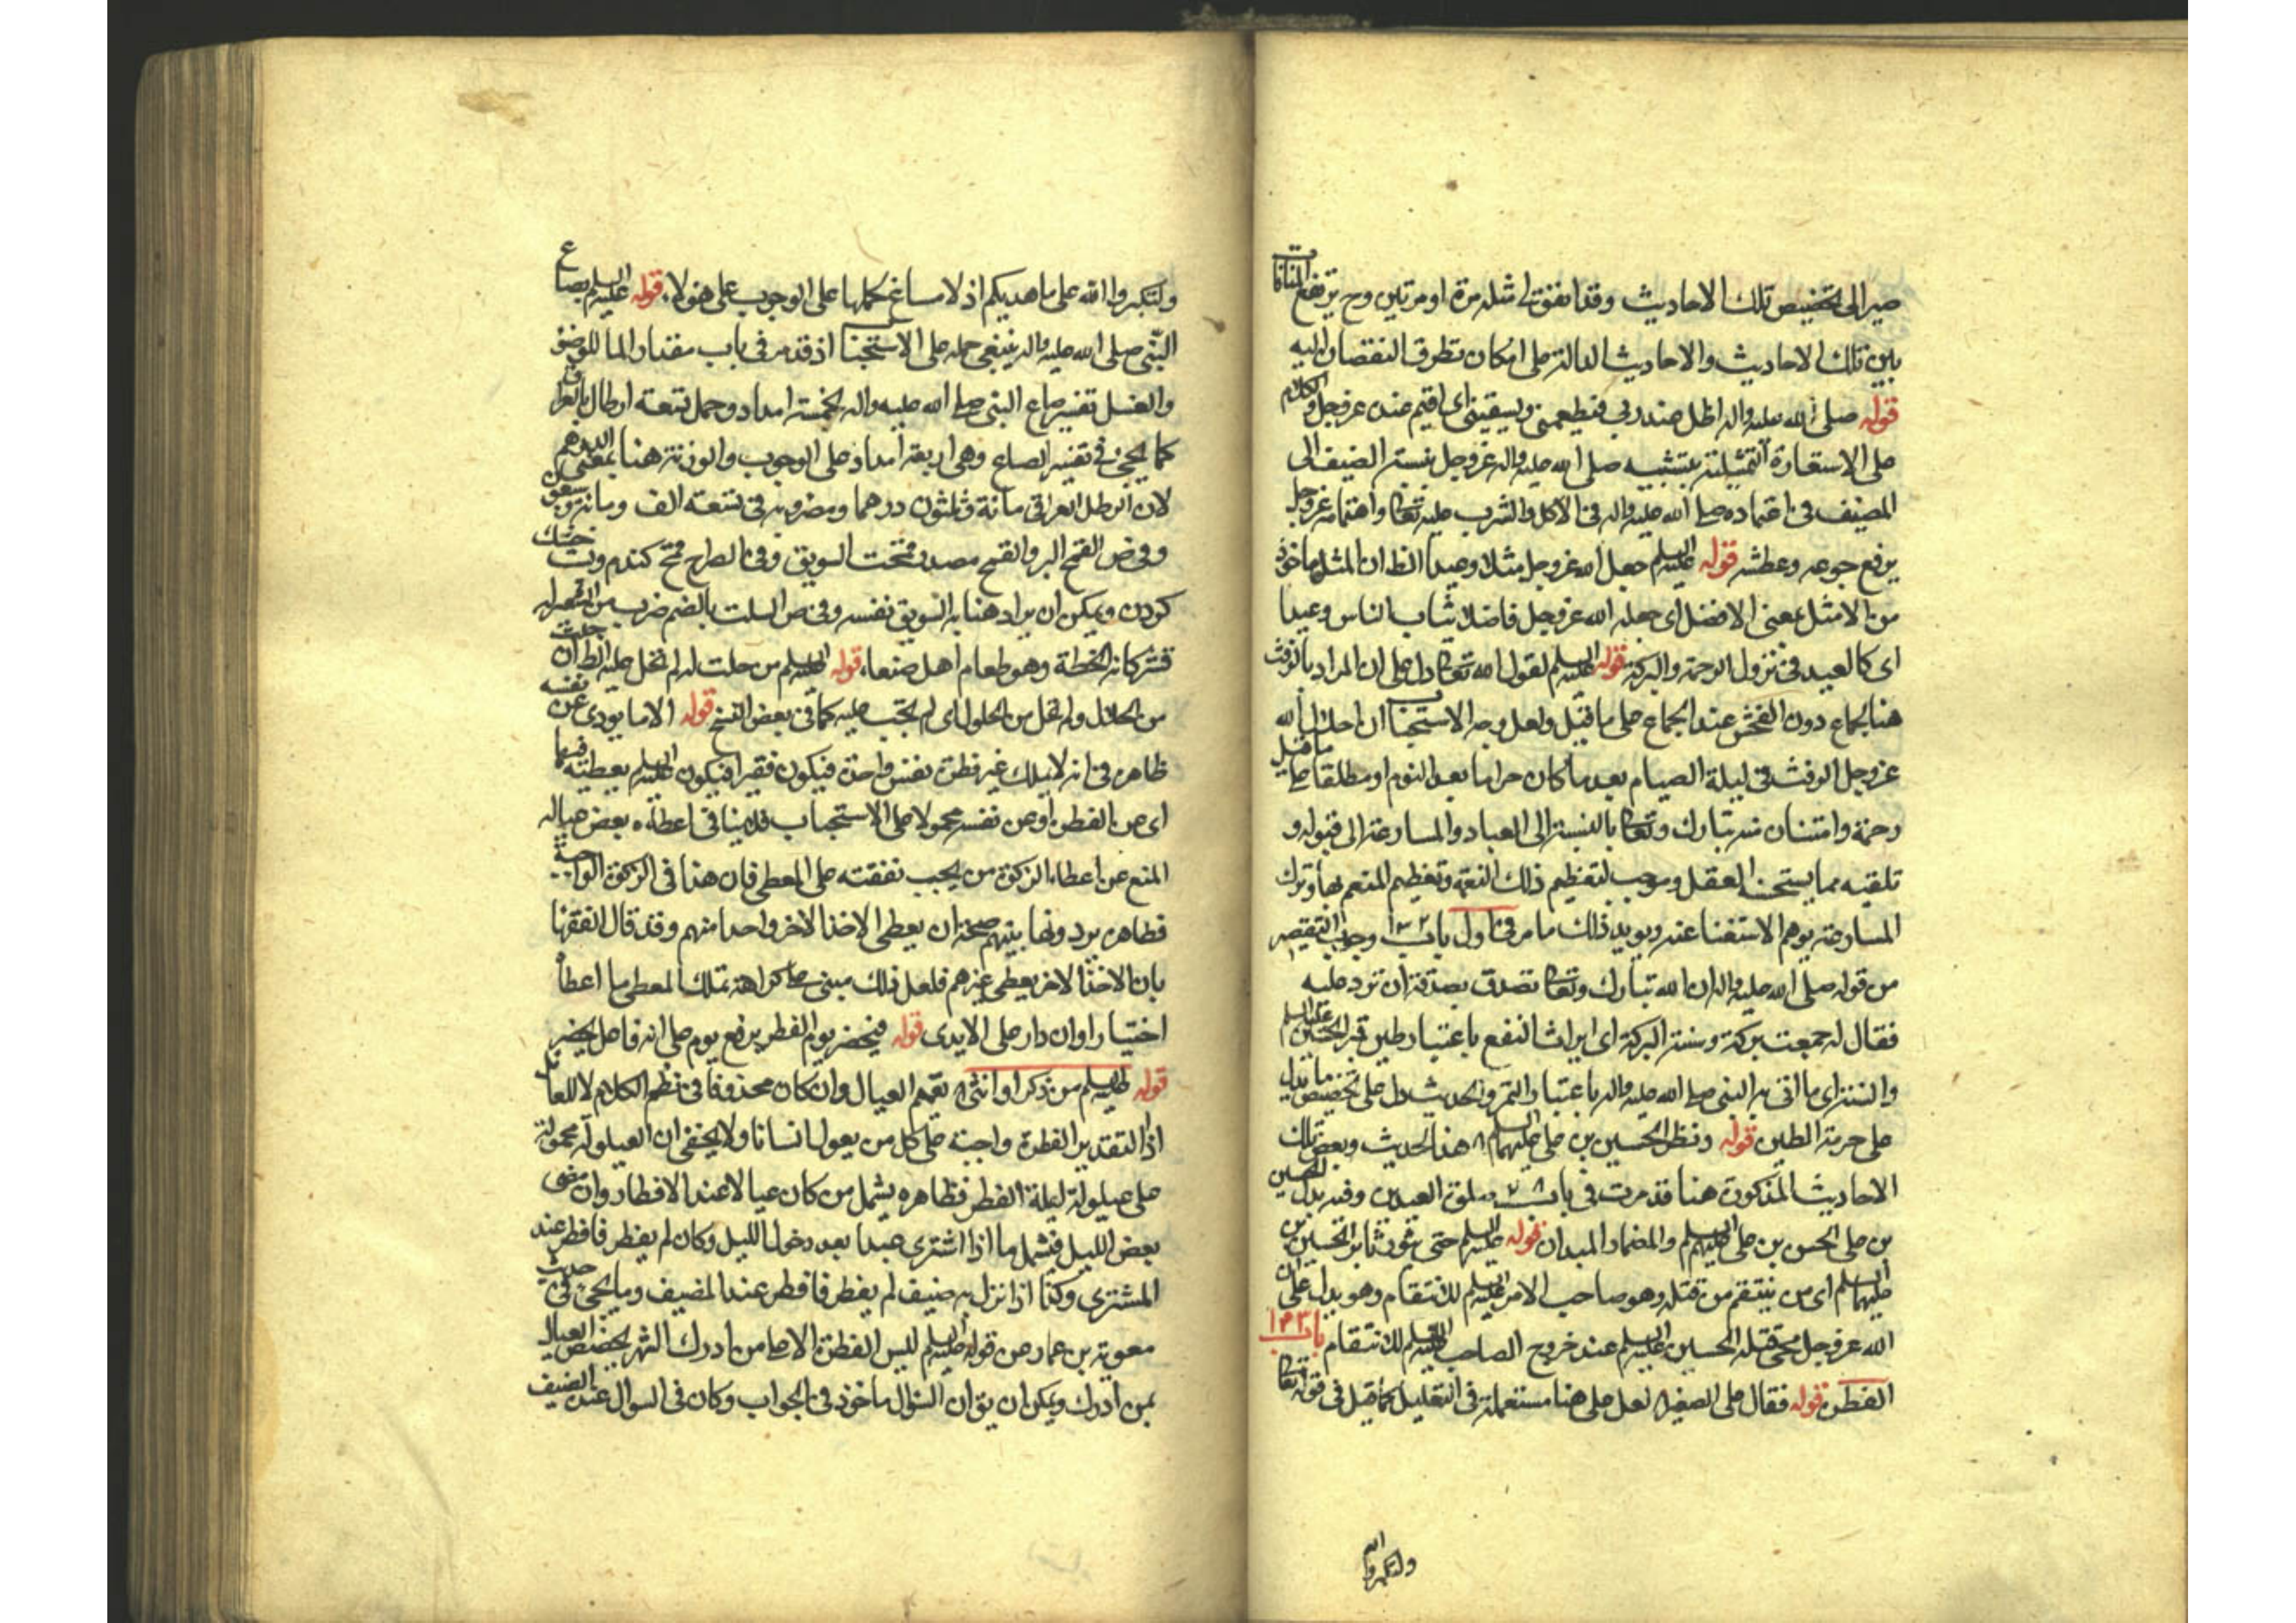 صير الى تخصيص تلك الاحاديث وقد اتفق له مثله مرة او مرتين وح يرتفع المنافاة
بين تلك الاحاديث والاحاديث الدالة على امكان تطرق النقصان اليه
قوله صلى الله عليه واله اظل عند ربى فيطعمنى ويسقينى اى اقيم عند عز وجل والكلام
على الاستعارة التمثيلية بتشبيه صلى الله عليه واله عز وجل بنسبة الضيف الى
المضيف فى اعتماده صلى الله عليه واله فى الاكل والشرب عليه تعالى واهتمامه عز وجل
يرفع جوعه وعطشه قوله عليه السلم جعل الله عز وجل مثلا وعيدا الظ ان المثل ماخوذ
من الامثل بمعنى الافضل اى جعله الله عز وجل فاضلا يثاب الناس وعيدا
اى كالعيد فى نزول الرحمة والبركة قوله عليه السلم لقول الله تعالى دل على ان المراد بالرفث
هنا الجماع دون الفحش عند الجماع على ما قيل ولعل وجه الاستحباب ان احلال الله
عز وجل الرفث فى ليلة الصيام بعد ما كان حراما بعد النوم او مطلقا على ما قيل
رحمة وامتنان منه تبارك وتعالى بالنسبة الى العباد والمسارعة الى قبوله و
تلقيه مما يستحسنه العقل وموجب لتعظيم ذلك النعمة وتعظيم المنعم بها وترك
المسارعة يوهم الاستغنا عنه ويويد ذلك ما مر فى اول باب وجوب التقصير
من قوله صلى الله عليه واله ان الله تبارك وتعالى تصدق بصدقة ان ترد عليه
فقال له جمعت بركة وسنة البركة اى ايراث النفع باعتبار طين قبر الحسين عليه السلم
والسنة اى ما اتى به النبى صلى الله عليه واله باعتبار التمر والحديث دل على تخصيص ما يدل
على حرمة الطين قوله ونظر الحسين بن على عليهما السلم هذا الحديث وبعض تلك
الاحاديث المذكورة هنا قد مرت فى باب صلوة العيدين وفيه بدل الحسين
بن على الحسن بن على عليهم السلم والمضمار الميدان قوله عليه السلم حتى يقوم ثائر الحسين بن
عليهما السلم اى من ينتقم من قتله وهو صاحب الامر عليه السلم للانتقام وهو يدل على ان
الله عز وجل يحيى قتلة الحسين عليه السلم عند خروج الصاحب عليه السلم للانتقام باب
الفطرة قوله فقال على الصغير لعل على هنا مستعملة فى التعليل كما قيل فى قوله تعالى
ولتكبروا الله
ولتكبروا الله على ما هديكم اذ لا مساغ لحملها على الوجوب على هولاء قوله عليه السلم بصاع
النبى صلى الله عليه واله ينبغى حمله على الاستحباب اذ قد مر فى باب مقدار الما للوضو
والغسل تفسير صاع النبى صلى الله عليه واله بخمسة امداد وحمل تسعة ارطال بالعراقى
كما يجئ فى تفسير الصاع وهى اربعة امداد على الوجوب والوزنة هنا بمعنى الدرهم
لان الرطل العراقى مائة وثلثون درهما ومضروبه فى تسعة الف ومائة وسبعون
وفى ض القمح البر والقمح مصدر قمحت السويق وفى الصراح قمح كندم وپست خشك
كردن ويمكن ان يراد هنا به السويق نفسه وفى ص السلت بالضم ضرب من الشعير له
قشر كانه الحنطة وهو طعام اهل صنعا، قوله عليه السلم من حلت له لم تحل عليه الظ ان حلت
من الحلال ولم تحل من الحلول اى لم يجب عليه كما فى بعض النسخ قوله الا ما يودى عن نفسه
ظاهر فى انه لا يملك غير فطرة نفس واحدة فيكون فقيرا فيكون عليه السلم يعطيه فيما
اى عن الفطرة او عن نفسه محمولا على الاستحباب فلا ينافى اعطاءه بعض عياله
المنع عن اعطاء الزكوة من يجب نفقته على المعطى فان هذا فى الزكوة الواجبة
فظاهر يرد ونها بينهم صحة ان يعطى الاخذ الاخر واحدا منهم وقد قال الفقها
بان الاخذ الاخر يعطى غيرهم فلعل ذلك مبنى على كراهة تملك المعطى ما اعطاه
اختيارا وان دار على الايدى قوله فيحضر يوم الفطر يرفع يوم على انه فاعل يحضر
قوله عليه السلم من ذكر او انثى تعميم العيال وان كان محذوفا فى نظم الكلام لا للعائل
اذ التقدير الفطرة واجبة على كل من يعول انسانا ولا يخفى ان العيلولة محمولة
على عيلولة ليلة الفطر فظاهره يشمل من كان عيالا عند الافطار وان مضى
بعض الليل فيشمل ما اذا اشترى عبدا بعد دخول الليل وكان لم يفطر فافطر عند
المشترى وكذا اذا نزل به ضيف لم يفطر فافطر عند المضيف وما يجئ فى حديث
معوية بن عمار من قوله عليه السلم ليس الفطرة الا على من ادرك الشهر يخصص العيال
بمن ادرك ويمكن ان يق ان السؤال ماخوذ فى الجواب وكان فى السوال عند الضيف